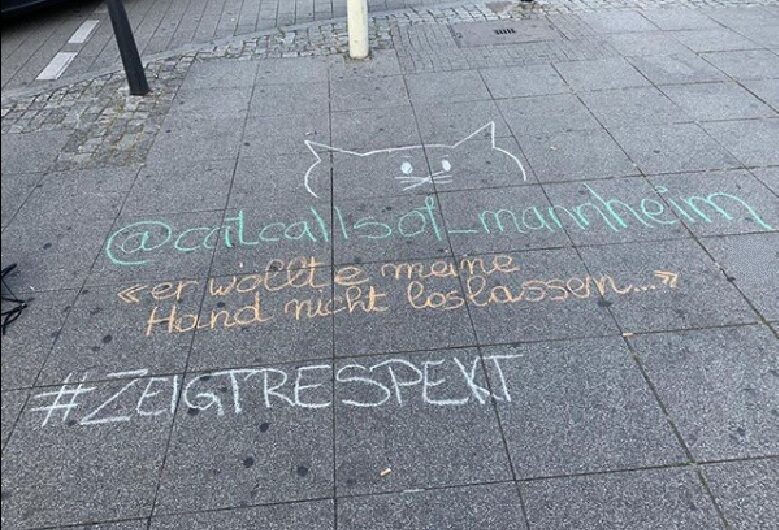 @catcallsof_mannheim
«er wollte meine
Hand nicht loslassen...»
#ZEIGTRESPEKT